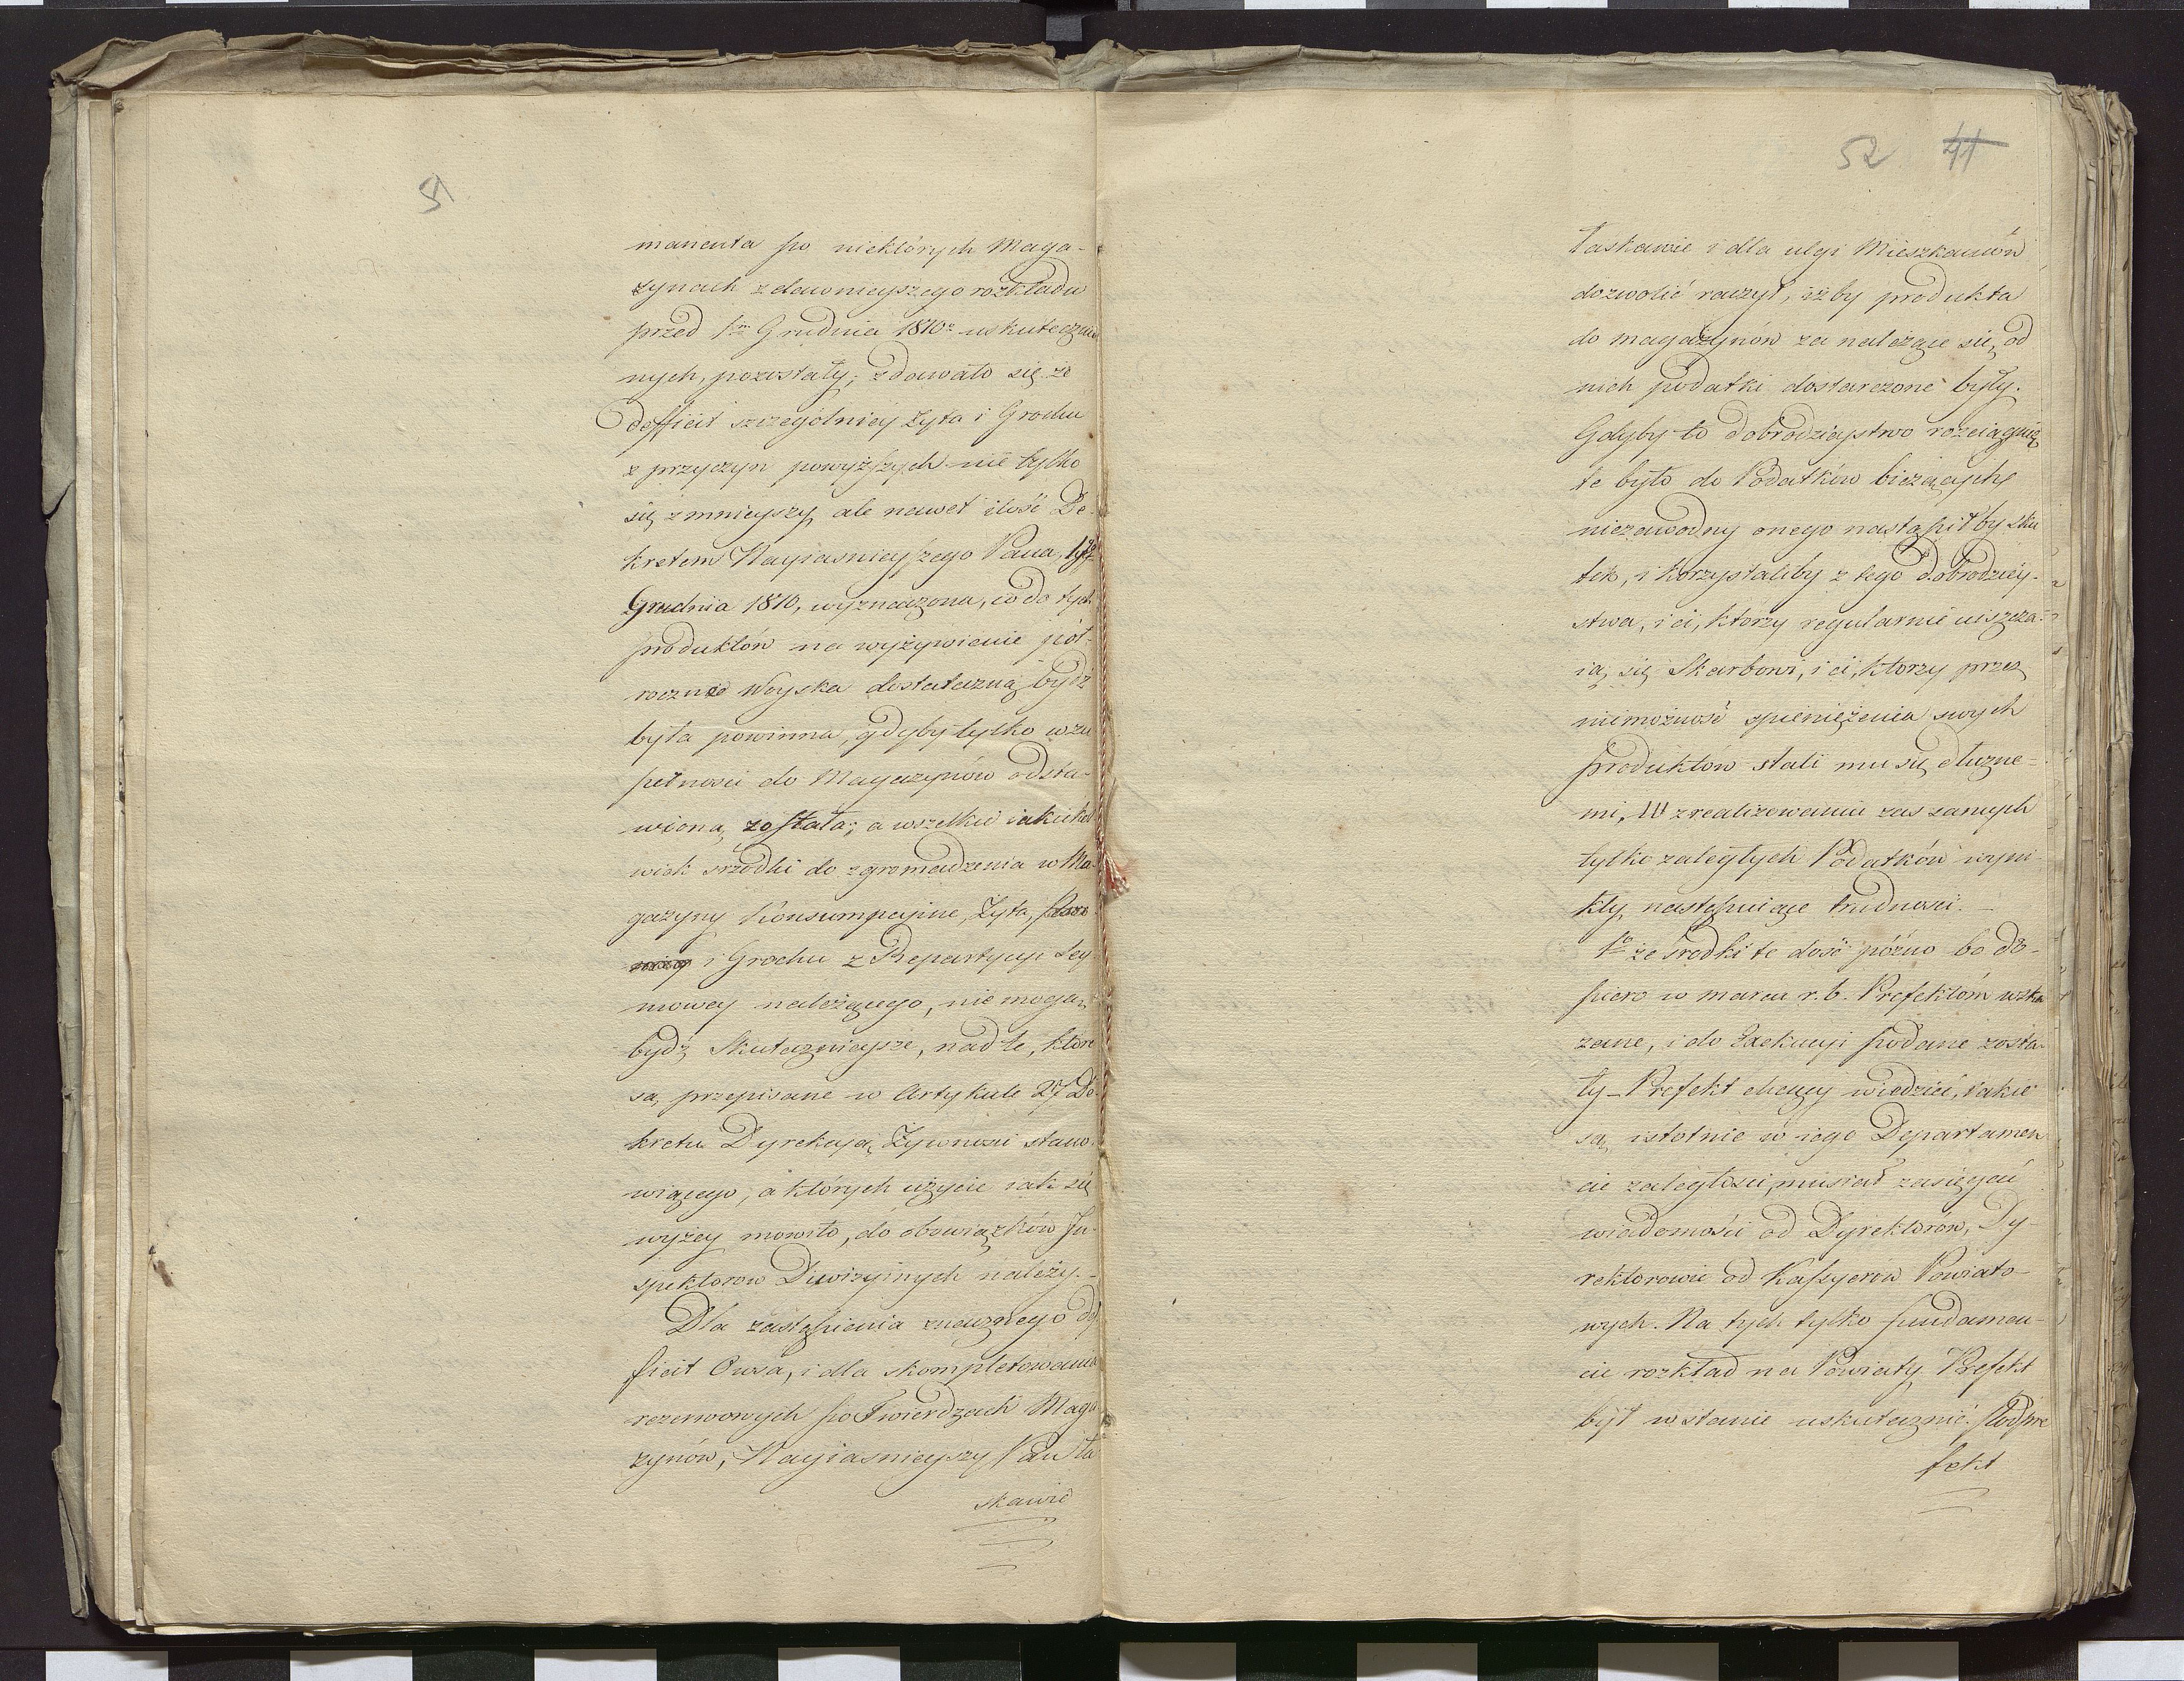 51
manenta po niektórych Maga-
zynach z dawnieyszego rozkładu
przed 1m Grudnia 1810r uskuteczni
nych, pozostały; zdawało się że
Defficit szczególniey żyta i Grochu
z przyczyn powyższych nie tylko
się zmnieyszy, ale nawet ilość De-
kretem Nayiasnieyszego Pana,
Grudnia 1810, wyznaczona, co do tych
produktów na wyżywienie pół-
roczne Woyska dostateczną bydź
była powinna, gdyby tylko w zu
pełnosci do Magazynów odsta-
wioną została; a wszelkie iakiekol
wiek srzodki do zgromadzenia w Ma-
gazyny Konsumpcyine, Żyta,
i Grochu z Repartycyi Sey
mowey należącego, nie mogą
bydź skutecznieysze, nad te, które
są przepisane w Artykule 27 De-
kretu Dyrekcyą Żywnosci stano-
wiącego, a których użycie iak się
wyżey mowiło, do obowiązków In-
spektorow Diwizyinych należy.-
Dla zastąpienia znacznego def
ficit Owsa, i dla skompletowania
rezerwowych po Twierdzach Maga
zynów, Nayiasnieyszy Pan ła
skawie
52 41
Łaskawie i dla ulgi Mieszkańców
dozwolić raczył, iżby produkta
do magazynów za należące się od
nich podatki dostarczone były.
Gdyby to Dobrodzieystwo rozciągnię
te było do Podatków bieżących,
niezawodny onego nastąpiłby sku
tek, i korzystaliby z tego dobrodziey-
stwa, i ci, którzy regularnie uiszcza-
ią się Skarbowi, i ci, ktorzy przez
niemożność spieniężenia swych
produktów stali mu się dłużne=
mi. W zrealizowaniu zas samych
tylko zaległych Podatków wyni
kły następuiące trudnosci.-
1o że srodki te dość późno bo do-
piero w marcu r. b. Prefektóm wska
zane, i do Exekucyi podane zosta-
ły - Prefekt chcący wiedzieć, iakie
są istotnie w iego Departamen
cie zaległosci, musiał zasięgać
wiadomości od Dyrektorów, Dy-
rektorowie od Kassyerów Powiato-
wych. Na tych tylko fundamen-
cie rozkład na Powiaty Prefekt
był w stanie uskutecznić. Podpre
fekt